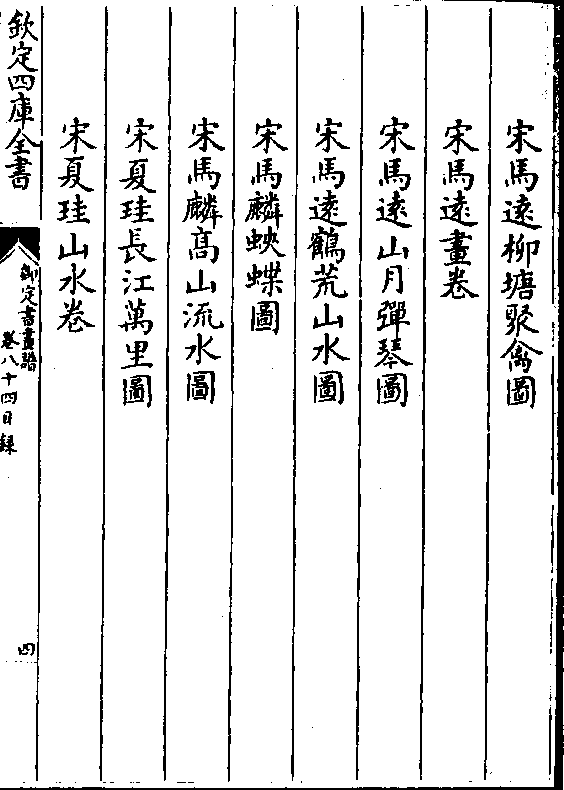 宋馬遠柳塘聚禽圖
宋馬遠畫卷
宋馬遠山月彈琴圖
宋馬遠鶴荒山水圖
宋馬麟蛺蝶圖
宋馬麟高山流水圖
宋夏珪長江萬里圖
宋夏珪山水卷
欽定四庫全書
御定書畫譜
卷八十四目錄
四